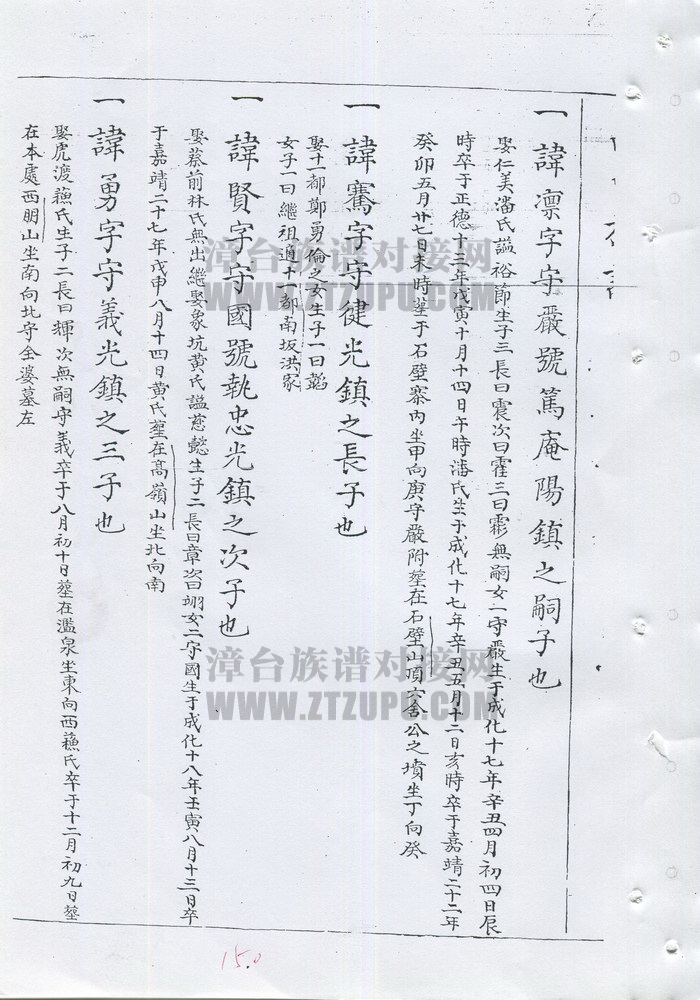 一諱凛字守嚴號篤庵陽鎮之嗣子也
娶仁美潘氏謚裕節生子三長曰震次曰霍三曰霦無嗣女一守嚴生于成化十七年辛丑四月初四日辰
時卒于正德十三年戊寅十月十四日午時潘氏生于成化十七年辛丑五月十二日亥時卒于嘉靖二十二年
癸卯五月廿七日未時塟于石壁寨內坐甲向庚守嚴附塟在石壁山頂六舍公之墳坐丁向癸
一諱騫字守健光鎮之長子也
娶十一都鄭勇倫之女生子一曰韜
女子一曰繼祖適十一都南坂洪家
一諱賢字守國號執忠光鎮之次子也
娶蔡前林氏無出繼娶象坑黃氏謚慈懿生子二長曰章次曰翊女二守國生于成化十八年壬寅八月十三日卒
于嘉靖二十七年戊申八月十四日黃氏塟在高嶺山坐北向南
一諱勇字守義光鎮之三子也
娶虎渡蘓氏生子二長曰輝次無嗣守義卒于八月初十日塟在濫泉坐東向西蘓氏卒于十二月初九日塟
在本處西明山坐南向北守全婆墓左
漳台族谱对接网
WWW.ZTZUPU.COM
漳台族谱对接网
WWW.ZTZUPU.COM
15.0